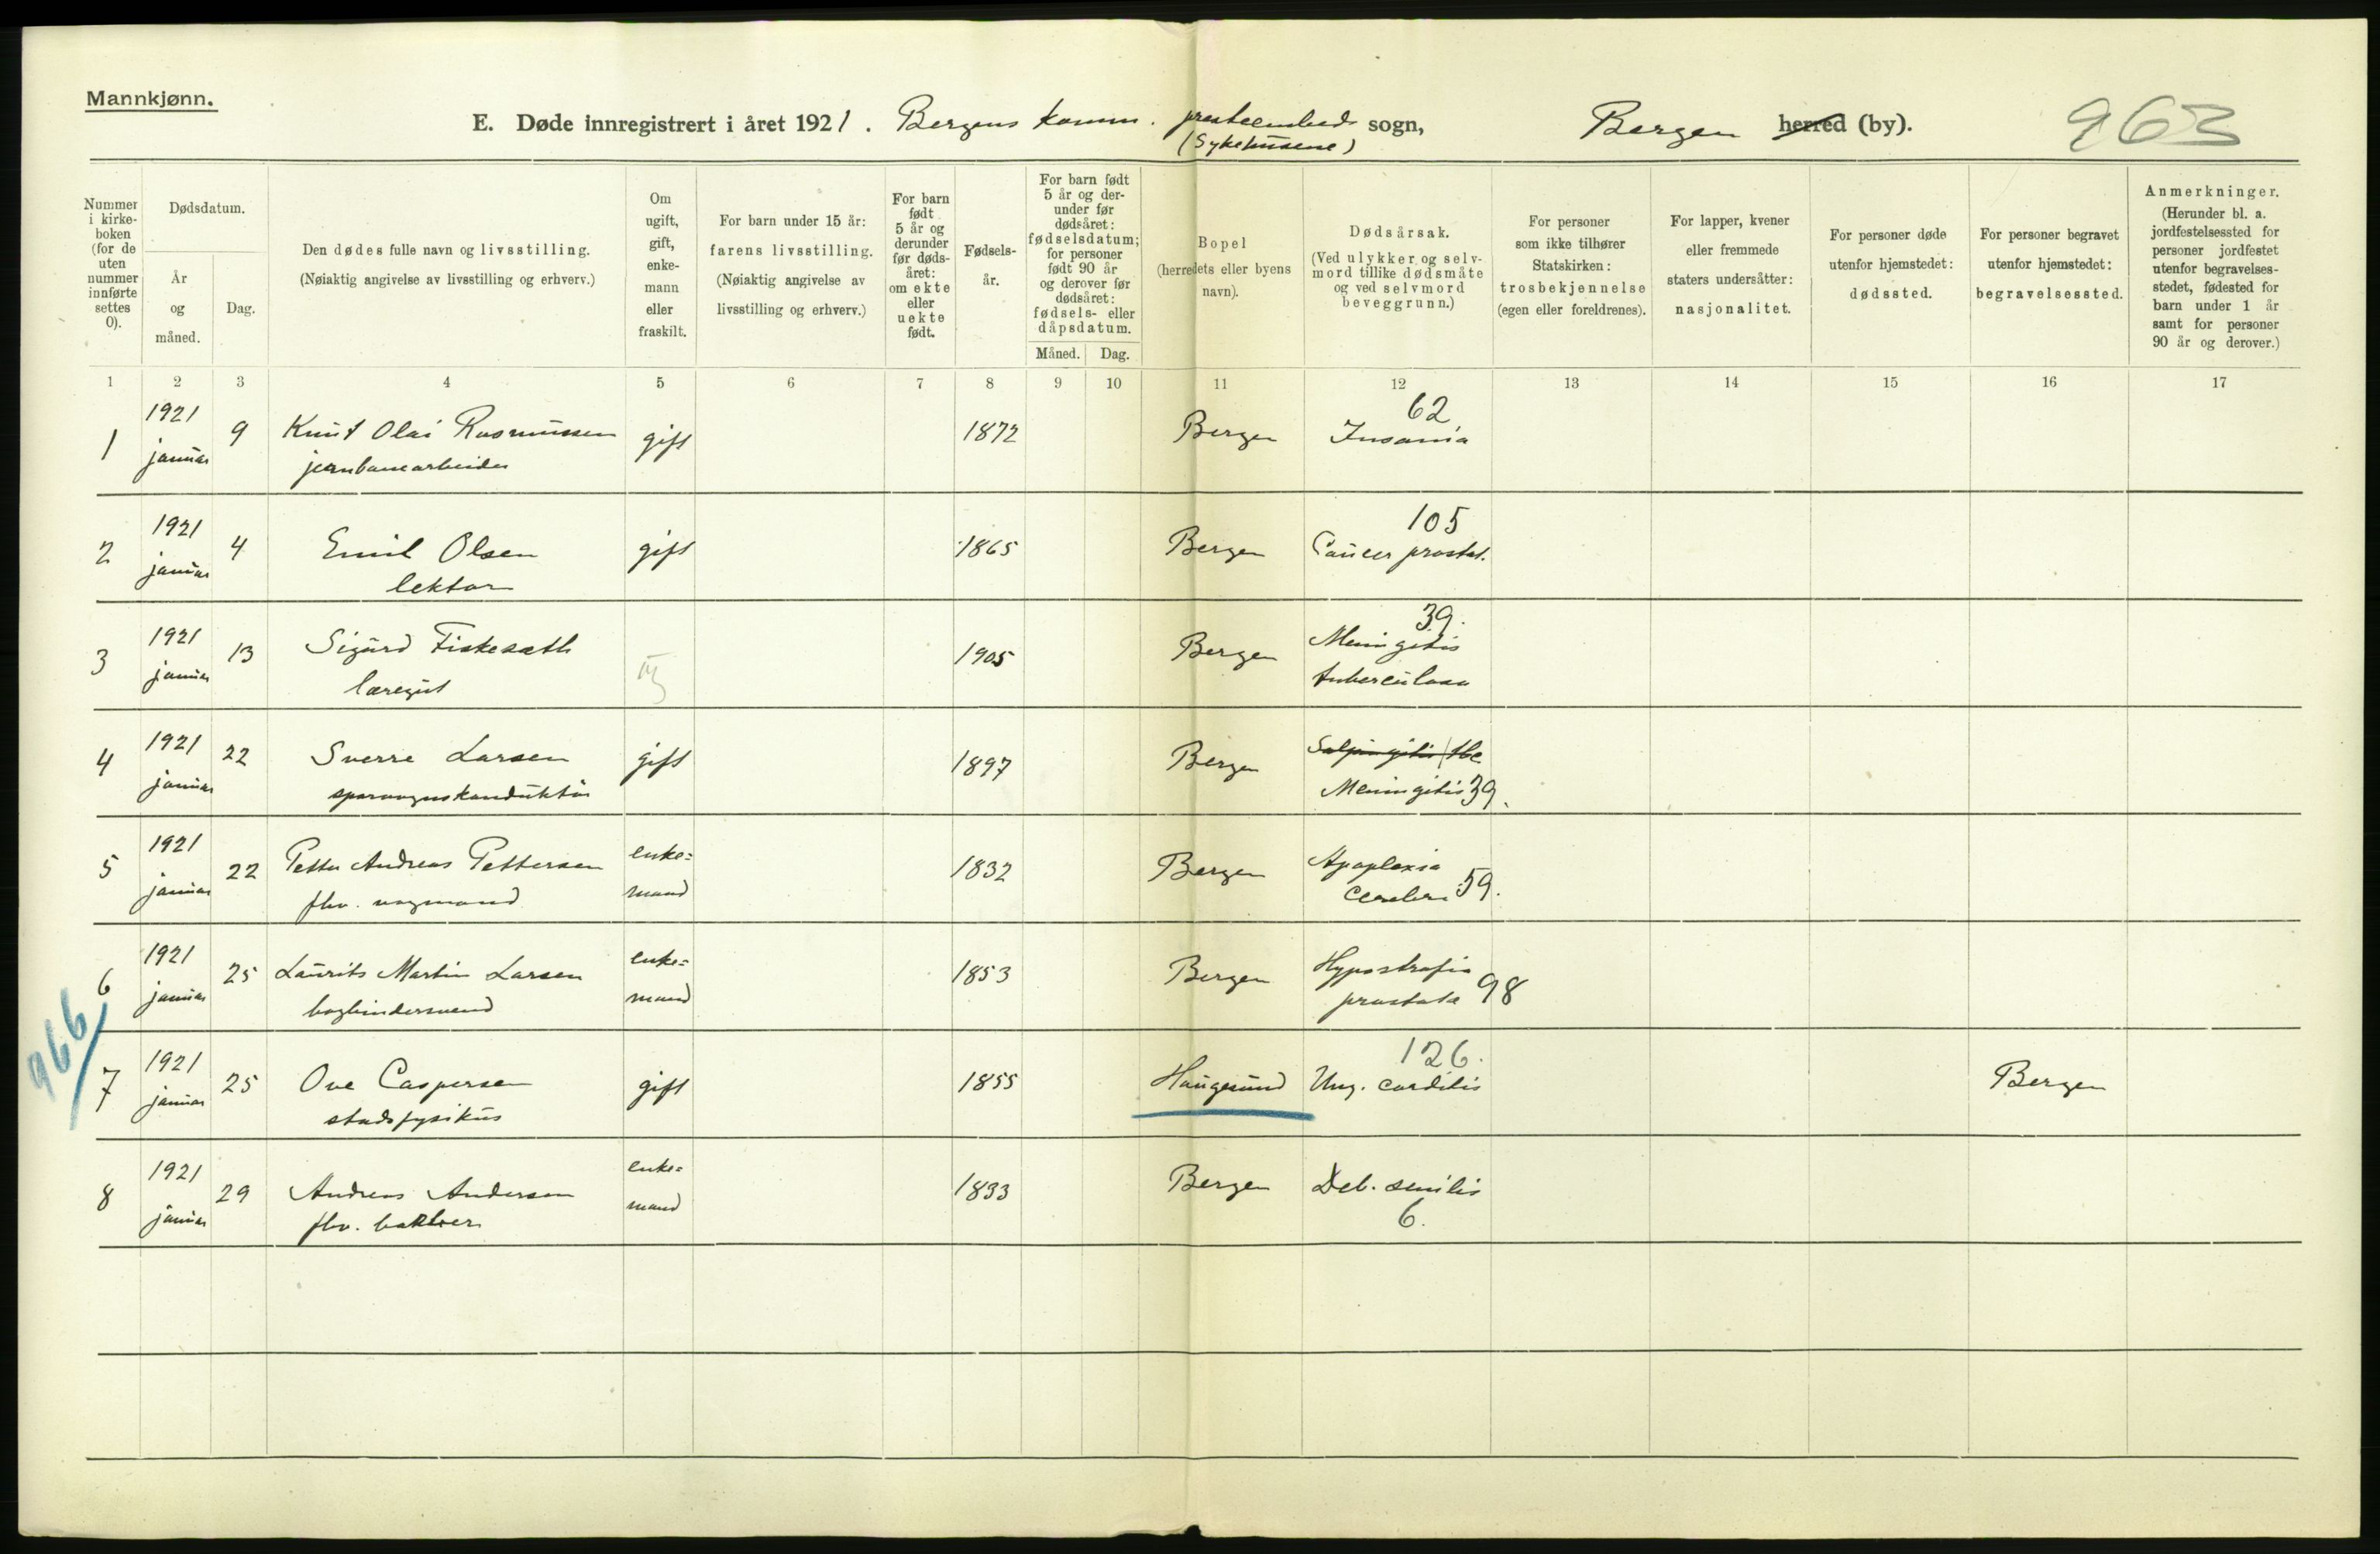 Mannkjønn.
E. Døde innregistrert i året 1921. Bergens komm. presteembede sogn, Bergen herred (by). 963
(Sykehusene)
Nummer i kirke-boken (for de uten nummer innførte settes 0).
Dødsdatum.
År og måned.
Dag.
Den dødes fulle navn og livsstilling.
(Nøiaktig angivelse av livsstilling og erhverv.)
Om ugift, gift, enke-mann eller fraskilt.
For barn under 15 år:
farens livsstilling.
(Nøiaktig angivelse av livsstilling og erhverv.)
For barn født 5 år og derunder før døds-året: om ekte eller uekte født.
Fødsels-år.
For barn født 5 år og der-under før dødsåret: fødselsdatum; for personer født 90 år og derover før dødsåret: fødsels- eller dåpsdatum.
Måned. Dag.
Bopel
(herredets eller byens navn).
Dødsårsak.
(Ved ulykker og selv-mord tillike dødsmåte og ved selvmord beveggrunn.)
For personer som ikke tilhører Statskirken:
trosbekjennelse
(egen eller foreldrenes).
For lapper, kvener eller fremmede staters undersåtter:
nasjonalitet.
For personer døde utenfor hjemstedet:
dødssted.
For personer begravet utenfor hjemstedet:
begravelsessted.
Anmerkninger.
(Herunder bl. a. jordfestelsessted for personer jordfestet utenfor begravelses-stedet, fødested for barn under 1 år samt for personer 90 år og derover.)
1 2 3 4 5 6 7 8 9 10 11 12 13 14 15 16 17
1921 62
1 januar 9 Knut Olai Rasmussen gift 1872 Bergen Insania
jernbanearbeider
1921 105
2 januar 4 Emil Olsen gift 1865 Bergen Cancer prostat.
lektor
1921 39.
3 januar 13 Sigurd Fiskesæth 1905 Bergen Meningitis
læregut tuberculosa
1921 Salpingitis tbc
4 januar 22 Sverre Larsen gift 1897 Bergen Meningitis 39.
sporvognskonduktør
1921
5 januar 22 Petter Andreas Pettersen enke= 1832 Bergen Apoplexia
fhv. vognmand mand cerebri 59.
1921
6 januar 25 Laurits Martin Larsen enke= 1853 Bergen Hypertrofia
bogbindersvend mand prostata 98
966
1921 126.
7 januar 25 Ove Caspersen gift 1855 Haugesund Ung. carditis Bergen
stadsfysikus
1921
8 januar 29 Andreas Andersen enke= 1833 Bergen Deb. senilis
fhv. bødker mand 6.